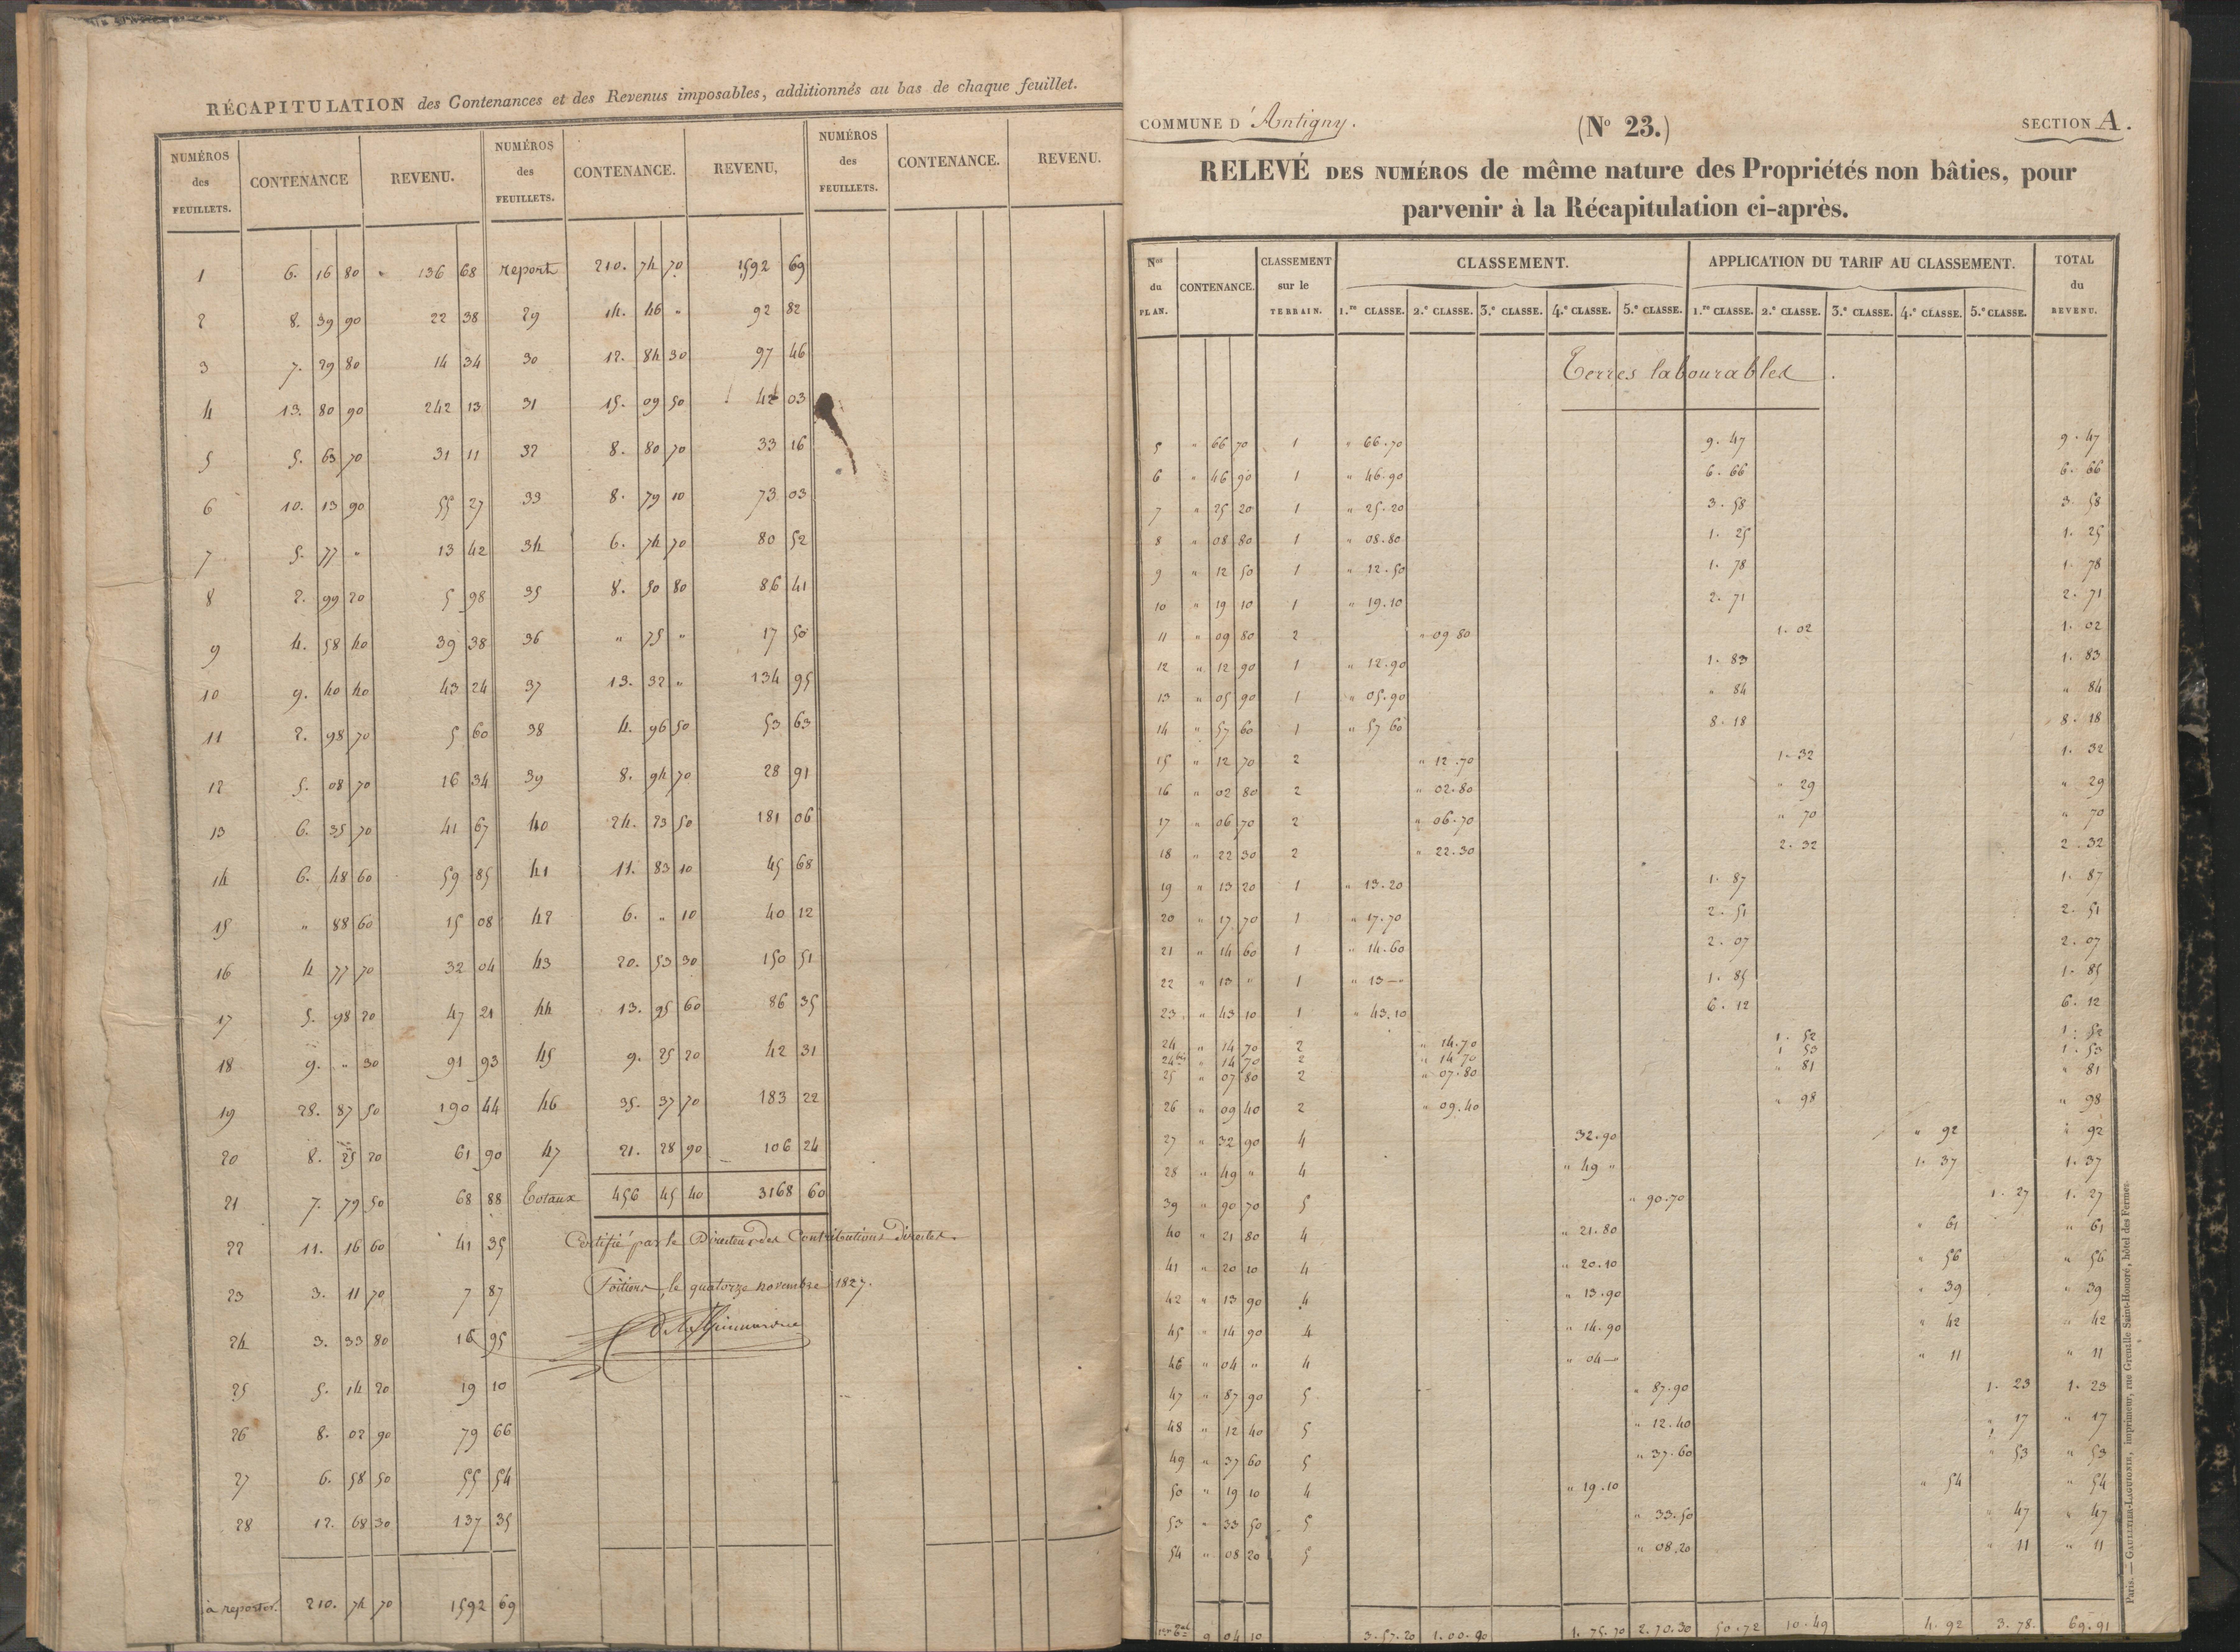 RÉCAPITULATION des Contenances et des Revenus imposables, additionnés au bas de chaque feuillet.
NUMÉROS des FEUILLETS. CONTENANCE REVENU. NUMÉROS des FEUILLETS. CONTENANCE. REVENU, NUMÉROS des FEUILLETS. CONTENANCE. REVENU.
1 6. 16 80 " 136 68 report 210. 74 70 1592 69
2 8. 39 90 22 38 29 14. 46 " 92 82
3 7. 29 80 14 34 30 12. 84 30 97 46
4 13. 80 90 242 13 31 15. 09 50 42 03
5 5. 63 70 31 11 32 8. 80 70 33 16
6 10. 13 90 55 27 33 8. 79 10 73 03
7 5. 77 " 13 42 34 6. 74 70 80 52
8 2. 99 20 5 98 35 8. 50 80 86 41
9 4. 58 40 39 38 36 " 75 " 17 50
10 9. 40 40 43 24 37 13. 32 " 134 95
11 2. 98 70 5 60 38 4. 96 50 53 63
12 5. 08 70 16 34 39 8. 94 70 28 91
13 6. 35 70 41 67 40 24. 23 50 181 06
14 6. 48 60 59 85 41 11. 83 10 45 68
15 " 88 60 15 08 42 6. " 10 40 12
16 4 77 70 32 04 43 20. 53 30 150 51
17 5. 98 20 47 21 44 13. 95 60 86 35
18 9. " 30 91 93 45 9. 25 20 42 31
19 28. 87 50 190 44 46 35. 37 70 183 22
20 8. 25 20 61 90 47 21. 28 90 106 24
21 7. 79 50 68 88 Totaux 456 45 40 3168 60
22 11. 16 60 41 35 Certifié par le Directeur des Contributions directes.
23 3. 11 70 7 87 Poitiers, le quatorze novembre 1827.
24 3. 33 80 16 95
25 5. 14 20 19 10
26 8. 02 90 79 66
27 6. 58 50 55 54
28 12. 68 30 137 35
à reporter. 210. 74 70 1592 69
COMMUNE D'Antigny. (No 23.) SECTION A.
RELEVÉ DES NUMÉROS de même nature des Propriétés non bâties, pour
parvenir à la Récapitulation ci-après.
Nos du PLAN. CONTENANCE. CLASSEMENT sur le TERRAIN. CLASSEMENT. APPLICATION DU TARIF AU CLASSEMENT. TOTAL du REVENU.
1.re CLASSE. 2.e CLASSE. 3.e CLASSE. 4.e CLASSE. 5.e CLASSE. 1.re CLASSE. 2.e CLASSE. 3.e CLASSE. 4.e CLASSE. 5.e CLASSE.
Terres labourables.
5 " 66 70 1 " 66.70 9. 47 9. 47
6 " 46 90 1 " 46.90 6. 66 6. 66
7 " 25 20 1 " 25.20 3. 58 3. 58
8 " 08 80 1 " 08.80 1. 25 1. 25
9 " 12 50 1 " 12.50 1. 78 1. 78
10 " 19 10 1 " 19.10 2. 71 2. 71
11 " 09 80 2 " 09 80 1. 02 1. 02
12 " 12 90 1 " 12.90 1. 83 1. 83
13 " 05 90 1 " 05.90 " 84 " 84
14 " 57 60 1 " 57 60 8. 18 8. 18
15 " 12 70 2 " 12.70 1. 32 1. 32
16 " 02 80 2 " 02.80 " 29 " 29
17 " 06 70 2 " 06.70 " 70 " 70
18 " 22 30 2 " 22.30 2. 32 2. 32
19 " 13 20 1 " 13.20 1. 87 1. 87
20 " 17 70 1 " 17.70 2. 51 2. 51
21 " 14 60 1 " 14.60 2. 07 2. 07
22 " 13 " 1 " 13 — " 1. 85 1. 85
23 " 43 10 1 " 43.10 6. 12 6. 12
24 " 14 70 2 " 14.70 1. 52 1. 52
24 bis " 14 70 2 " 14 70 1 53 1. 53
25 " 07 80 2 " 07.80 " 81 " 81
26 " 09 40 2 " 09.40 " 98 " 98
27 " 32 90 4 32.90 " 92 " 92
28 " 49 " 4 " 49 " 1. 37 1. 37
39 " 90 70 5 " 90.70 1. 27 1. 27
40 " 21 80 4 " 21.80 " 61 " 61
41 " 20 10 4 " 20.10 " 56 " 56
42 " 13 90 4 " 13.90 " 39 " 39
45 " 14 90 4 " 14.90 " 42 " 42
46 " 04 " 4 " 04 — " 11 " 11
47 " 87 90 5 " 87.90 1. 23 1. 23
48 " 12 40 5 " 12.40 " 17 " 17
49 " 37 60 5 " 37.60 " 53 " 53
50 " 19 10 4 " 19.10 " 54 " 54
53 " 33 50 5 " 33.50 " 47 " 47
54 " 08 20 5 " 08.20 " 11 " 11
9 04 10 3.57.20 1.00.90 1.75.70 2.70.30 50.72 10.49 4. 92 3. 78. 69.91
Paris. — GAULTIER-LAGUIONIE, imprimeur, rue Grenelle Saint-Honoré, hôtel des Fermes.